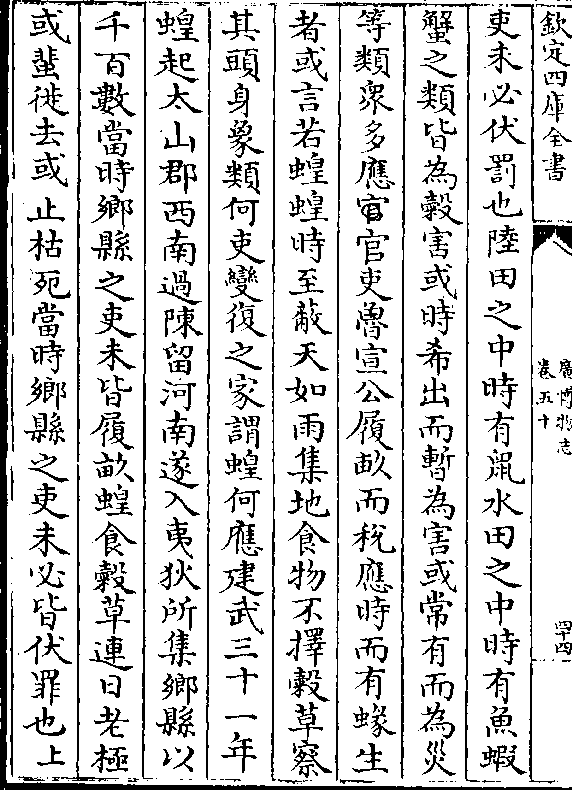 欽定四庫全書
廣博物志
卷五十
四十四
吏未必伏罰也陸田之中時有䑕水田之中時有魚蝦
蟹之類皆為穀害或時希出而暫為害或常有而為災
等類衆多應宿官吏魯宣公履畝而稅應時而有蝝生
者或言若蝗蝗時至蔽天如雨集地食物不擇穀草察
其頭身象類何吏變復之家謂蝗何應建武三十一年
蝗起太山郡西南過陳留河南遂入夷狄所集鄉縣以
千百數當時鄉縣之吏未皆履畝蝗食穀草連日老極
或蜚徙去或止枯死當時鄉縣之吏未必皆伏罪也上